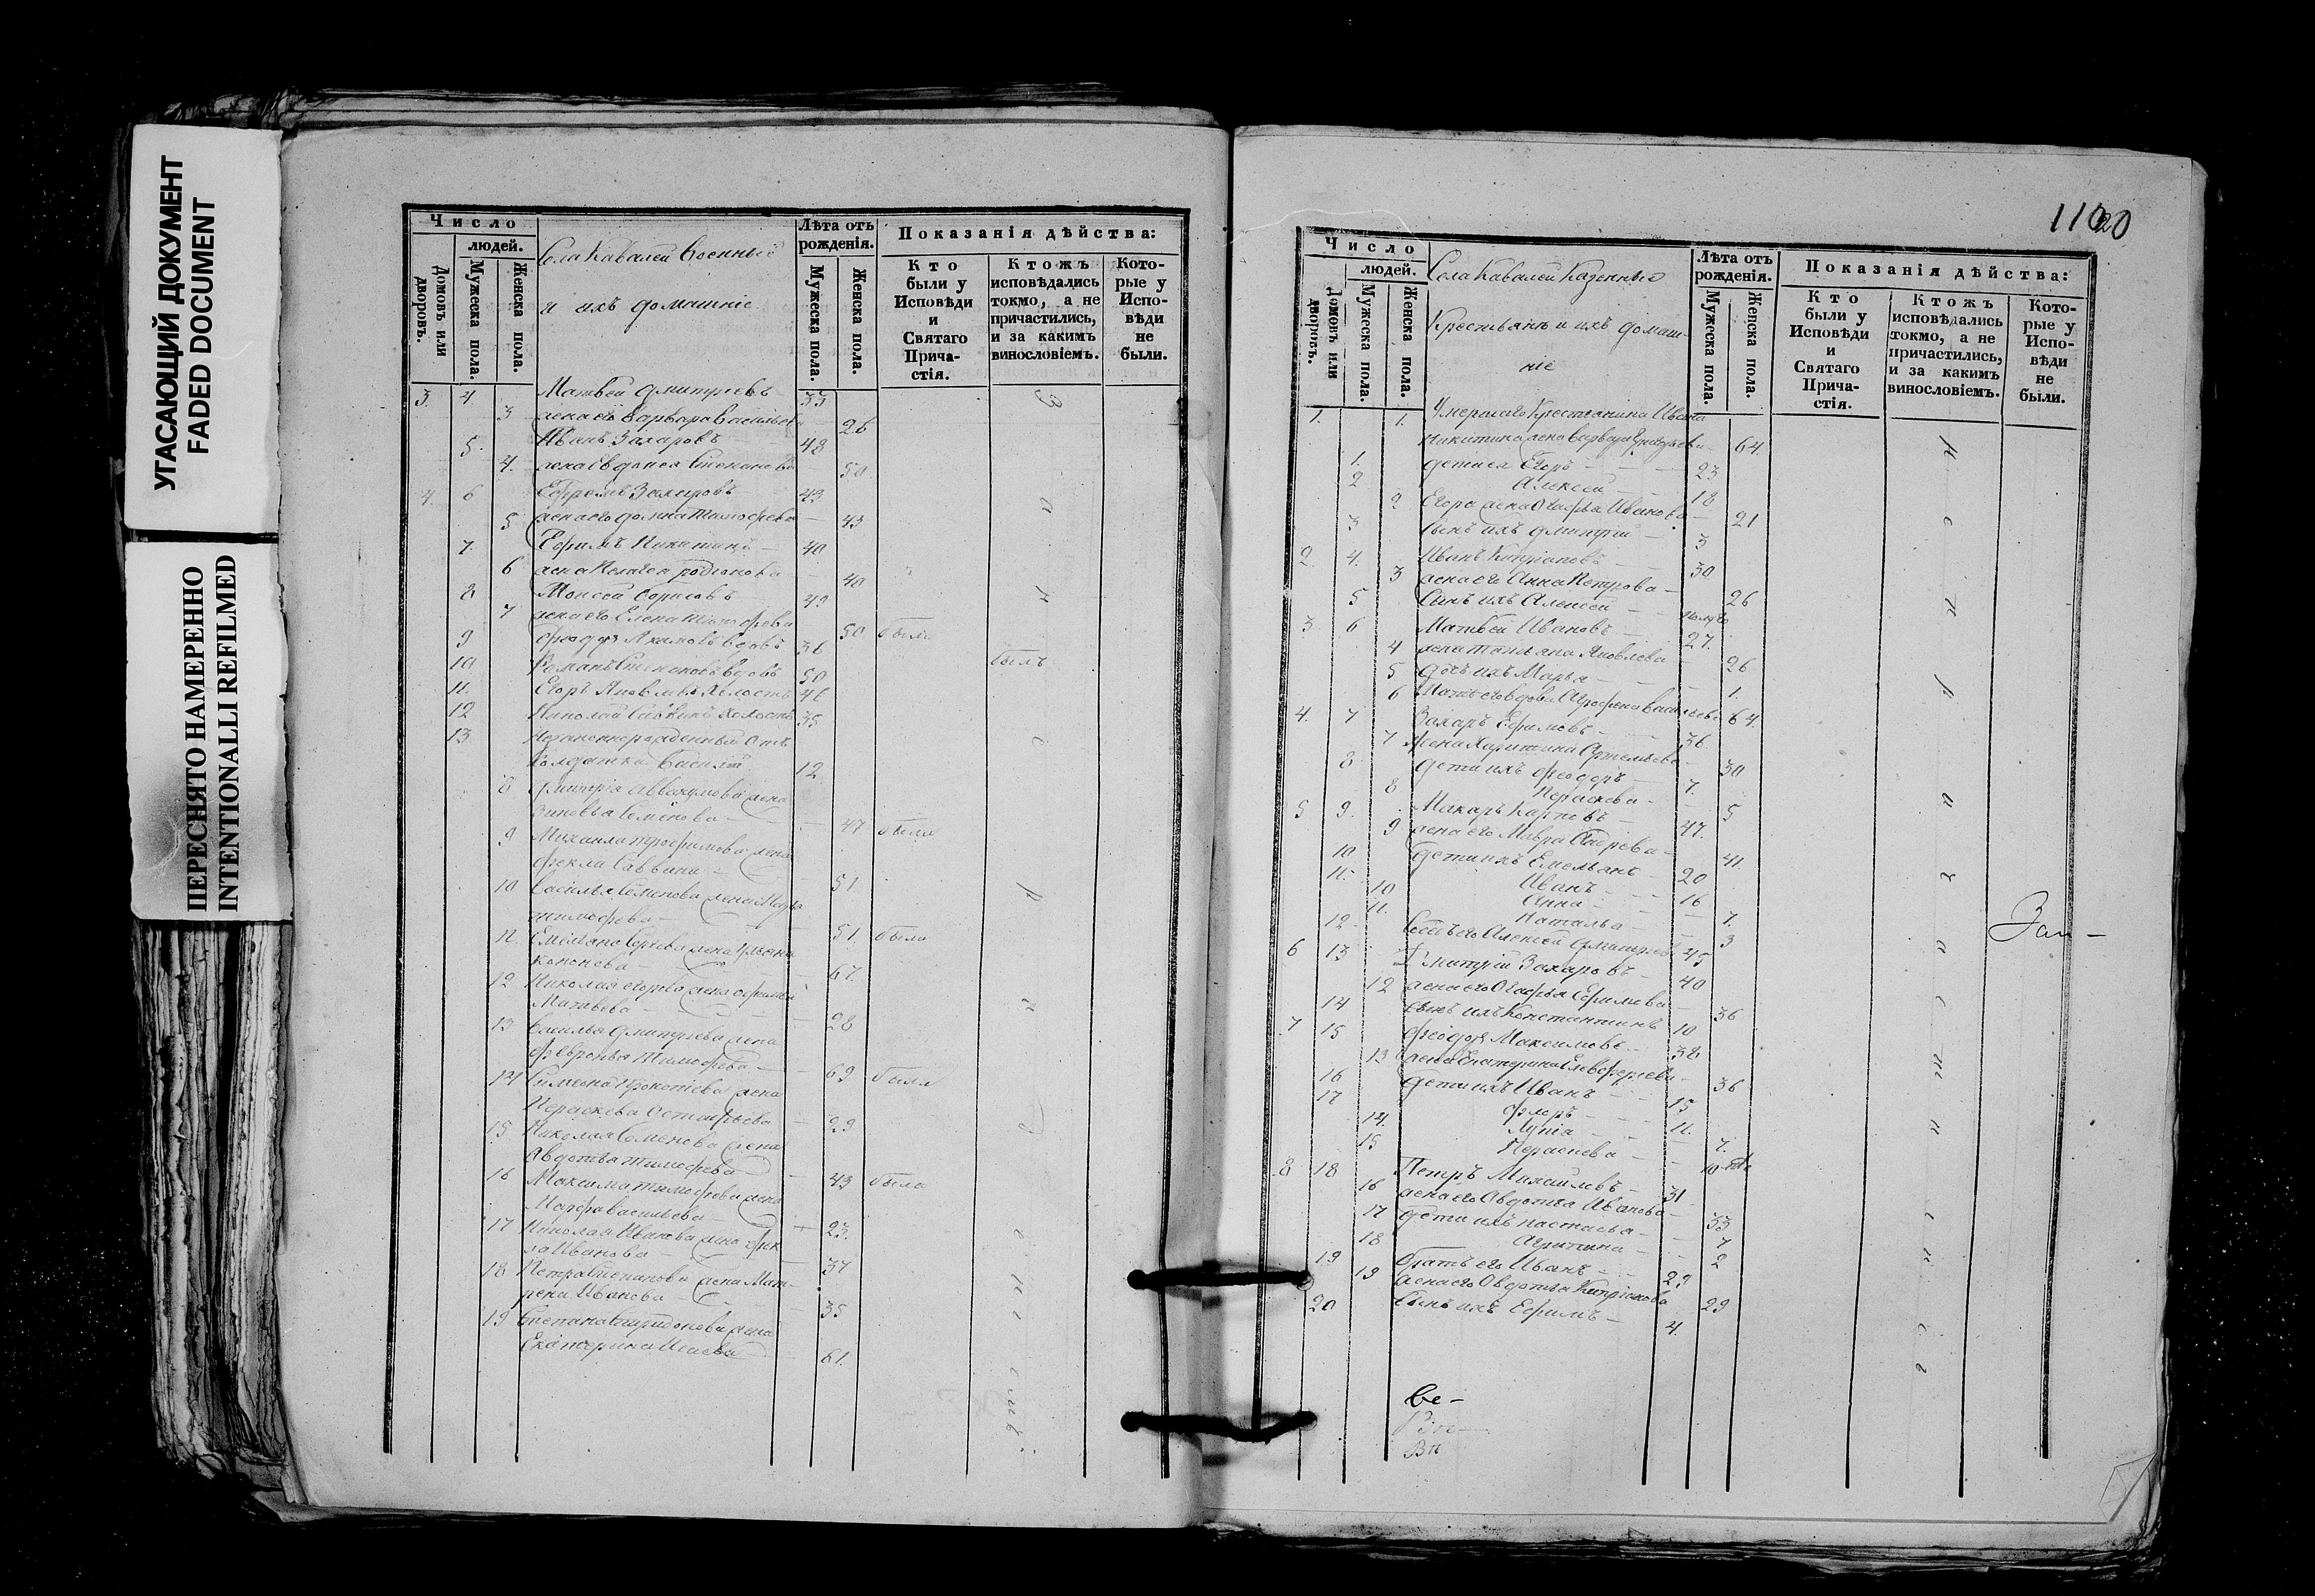 УГАСАЮЩИЙ ДОКУМЕНТ
FADED DOCUMENT
ПЕРЕСНЯТО НАМЕРЕННО
INTENTIONALLI REFILMED
Число
людей.
Домовъ или дворовъ.
Мужеска пола.
Женска пола.
Села Кавалей Военные
и ихъ домашніе
Лѣта отъ рожденія.
Мужеска пола.
Женска пола.
Показанія дѣйства:
Кто были у Исповѣди и Святаго Причастія.
Ктожъ исповѣдались токмо, а не причастились, и за какимъ винословіемъ.
Которые у Исповѣди не были.
3. 4. Матвей Дмитріевъ 33
3 жена его Варвара Васильева 26
5. Иванъ Захаровъ 48
4. жена Евдокея Степанова 50
4. 6 Ефремъ Захаровъ 43
5 жена его Домна Тимофеева 43
7. Ефимъ Никитинъ 40
6 жена Пелагея Родіонова 40
8 Моисей Борисовъ 49
7 жена его Елена Тимофеева 50 была
9 Феодоръ Акимовъ вдовъ 36
10 Романъ Степановъ вдовъ 50 былъ
11. Егоръ Яковлевъ холостъ 46
12 Николай Саввинъ холостъ 35
13. Незаконнорожденный отъ
Солдатки Василій 12
8 Дмитрія Аввакумова жена
Зиновья Семенова 47 была
9 Михаила Трофимова жена
Фекла Саввина 51
10 Василья Семенова жена Марфа
Тимофеева 51. была
11. Емельяна Сергеева жена Ульяна
Кононова 67.
12 Николая Егорова жена Ефимья
Матвеева 28
13 Василья Дмитріева жена
Февронья Тимофеева 69 была
14 Симеона Прокопіева жена
Параскева Остафьева 29
15 Николая Семенова жена
Авдотья Тимофеева 43 была
16 Максима Тимофеева жена
Марфа Васильева 23.
17 Николая Иванова жена Фек-
ла Иванова 37
18 Петра Степанова жена Мат-
рена Иванова 35
19 Степана Спиридонова жена
Екатерина Исаева 61.
110 20
Число
людей.
Домовъ или дворовъ.
Мужеска пола.
Женска пола.
Села Кавалей Казенные
Крестьяне и ихъ домаш-
ніе
Лѣта отъ рожденія.
Мужеска пола.
Женска пола.
Показанія дѣйства:
Кто были у Исповѣди и Святаго Причастія.
Ктожъ исповѣдались токмо, а не причастились, и за какимъ винословіемъ.
Которые у Исповѣди не были.
1. 1. Умершаго Крестьянина Ивана
Никитина жена Варвара Григорьева 64.
1. дети ея Егоръ 23
2 Алексей 18
2 Егора жена Агафья Иванова 21
3 Сынъ ихъ Дмитрій 3
2 4. Иванъ Кипріановъ 30
3 жена его Анна Петрова 26
5 Сынъ ихъ Алексей
3 6 Матвей Ивановъ 27.
4 жена Татьяна Яковлева 26
5 дочь ихъ Марья 1.
6 Мать его вдова Агрофена Васильева 64.
4. 7 Захаръ Ефимовъ 36.
7 Жена Харитина Артемьева 30
8 дети ихъ Феодоръ 7.
8 Параскева 5
5 9. Макаръ Карповъ 47.
9 жена его Мавра Андреева 41.
10 дети ихъ Емельянъ 20
11. Иванъ 16
10 Анна 7.
11. Наталья 3
12. Алексей Дмитріевъ 45
6 13 Дмитрій Захаровъ 40
12 жена его Агафья Ефимова 36
14 сынъ ихъ Константинъ 10
7 15 Феодоръ Максимовъ 38
13 жена Екатерина Елевферьева 36
16 дети ихъ Иванъ 15
17 Флоръ 11.
14. Лукія 7.
15 Параскева
8 18 Петръ Михайловъ 31
16 жена его Авдотья Иванова 33
17 дети ихъ Настасья 7
18 Агрипина 2
19 братъ его Иванъ 29
19 жена его Авдотья Кипріанова 29
20 Сынъ ихъ Ефимъ 4.
Зап-
Ве-
Вп